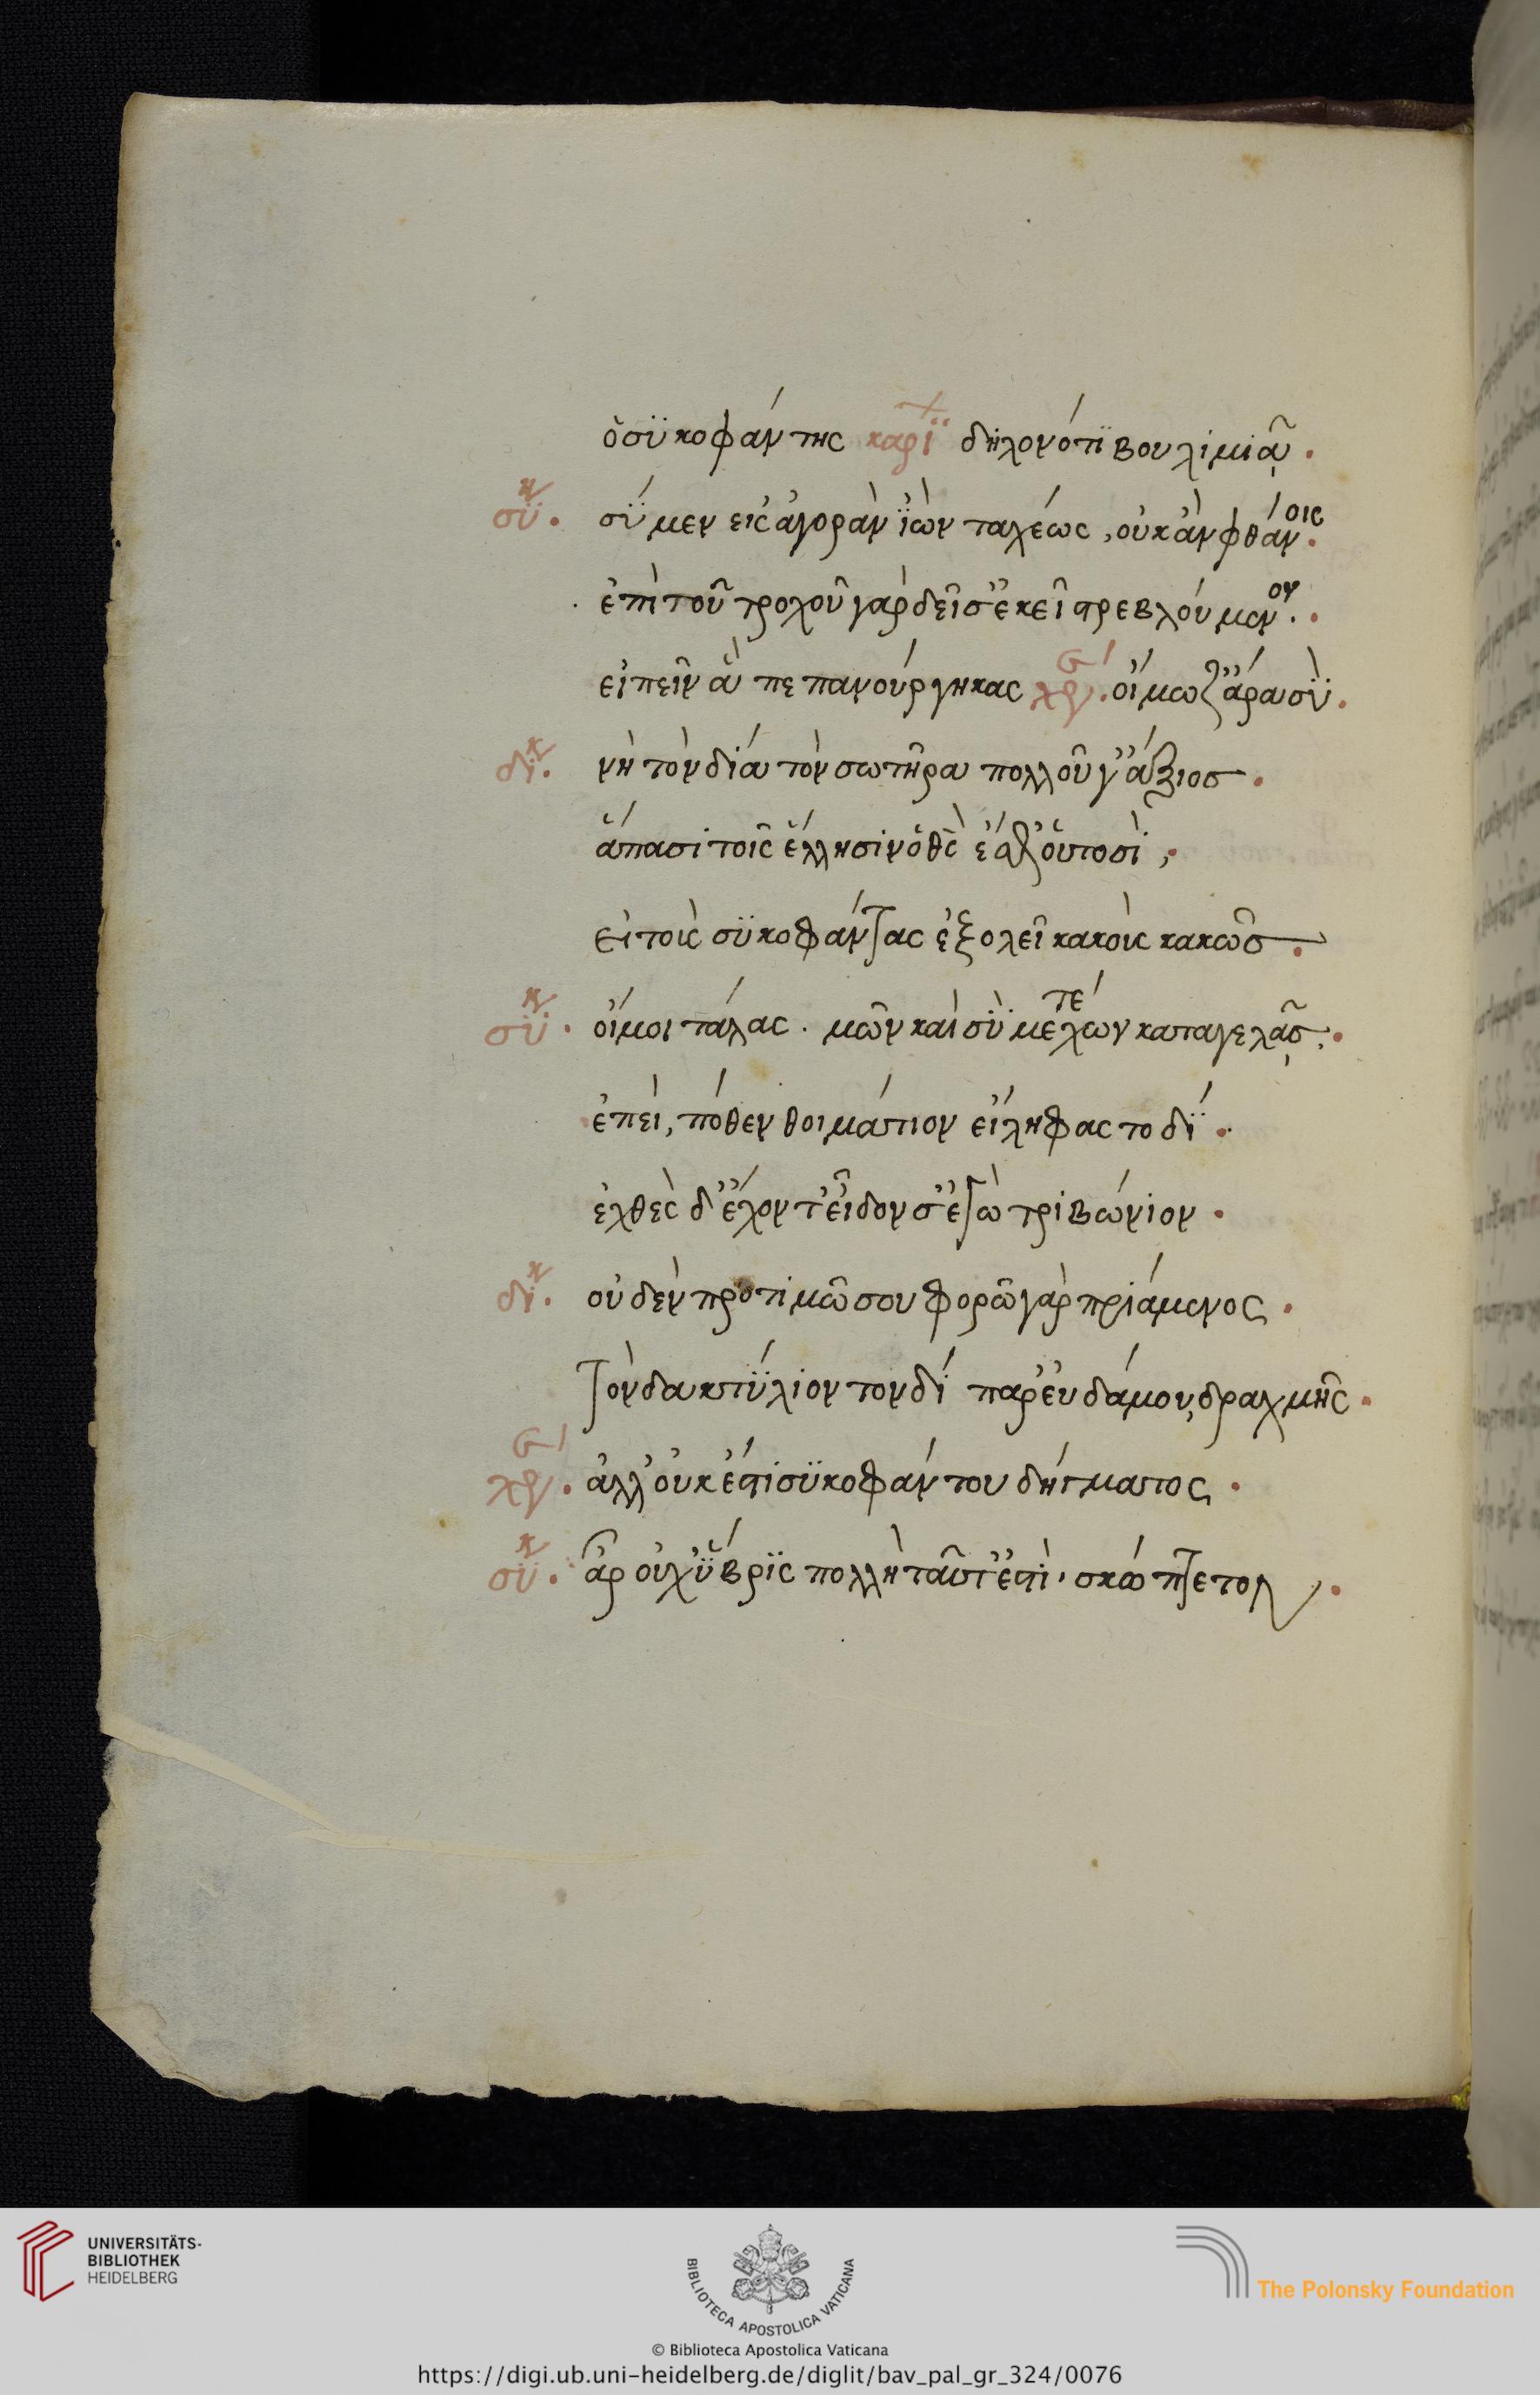 ὁ σϋκοφάντης καρϊ̈ δῆλον ὅτϊ βουλιμιᾷ.
σϋκ. σΰ μεν εἰς ἀγορὰν ἰ̈ὼν ταχέως, οὐκ ἂν φθάνοις.
ἐπὶ τοῦ τροχοῦ γὰρ δεῖ σ' ἐκεῖ στρεβλούμενον.
εἰπεῖν ἃ πεπανούργηκας χρ. οἴμωζ' ἄρα σῢ.
δικ. νὴ τὸν δία τὸν σωτῆρα πολλοῦ γ' ἄξιος.
ἅπασι τοῖς ἕλλησιν ὁ θς ἔσθ' οὗτοσὶ,
εἰ τοὺς σϋκοφάντας ἐξολεῖ κακοὺς κακῶς.
σϋκ. οἴμοι τάλας. μῶν καὶ σῢ μετέχων καταγελᾷς;
ἐπεὶ, πόθεν θοιμάτιον εἴληφας τοδΐ.
ἐχθὲς δ' ἔχοντ' εἶδον σ' ἐγὼ τριβώνιον.
δικ. οὐδὲν προτιμῶ σου φορῶ γὰρ πριάμενος
τὸν δακτΰλιον τονδί παρ' εὐδάμου, δραχμῆς.
χρ. ἀλλ' οὐκ ἔστι σϋκοφάντου δήγματος.
σϋκ. ἆρ οὐχ ϋ̔́βρϊς πολλὴ ταῦτ' ἐστὶ, σκώπτετον.
UNIVERSITÄTS-
BIBLIOTHEK
HEIDELBERG
BIBLIOTECA APOSTOLICA VATICANA
The Polonsky Foundation
© Biblioteca Apostolica Vaticana
https://digi.ub.uni-heidelberg.de/diglit/bav_pal_gr_324/0076